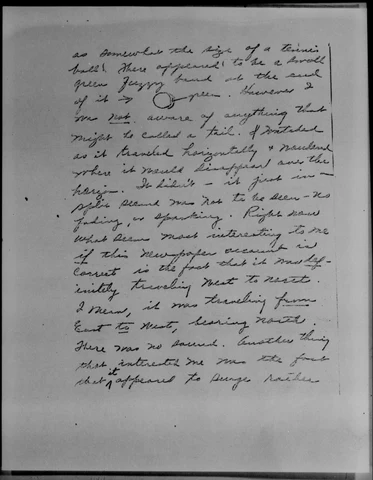 as somewhat the size of a tennis
ball. There appeared to be a small
green fuzzy band at the end
of it → green. However I
was not aware of anything that
might be called a tail. I watched
as it traveled horizontally & wondered
where it would disappear over the
horizon. It didn't – it just in –
split second was not to be seen – no
fading, or sparking. Right now
what seems most interesting to me
if this newspaper account is
correct is the fact that it was def-
initely traveling West to North.
I mean, it was traveling from
East to West, bearing North.
There was no sound. Another thing
that interested me was the fact
that it appeared to surge rather